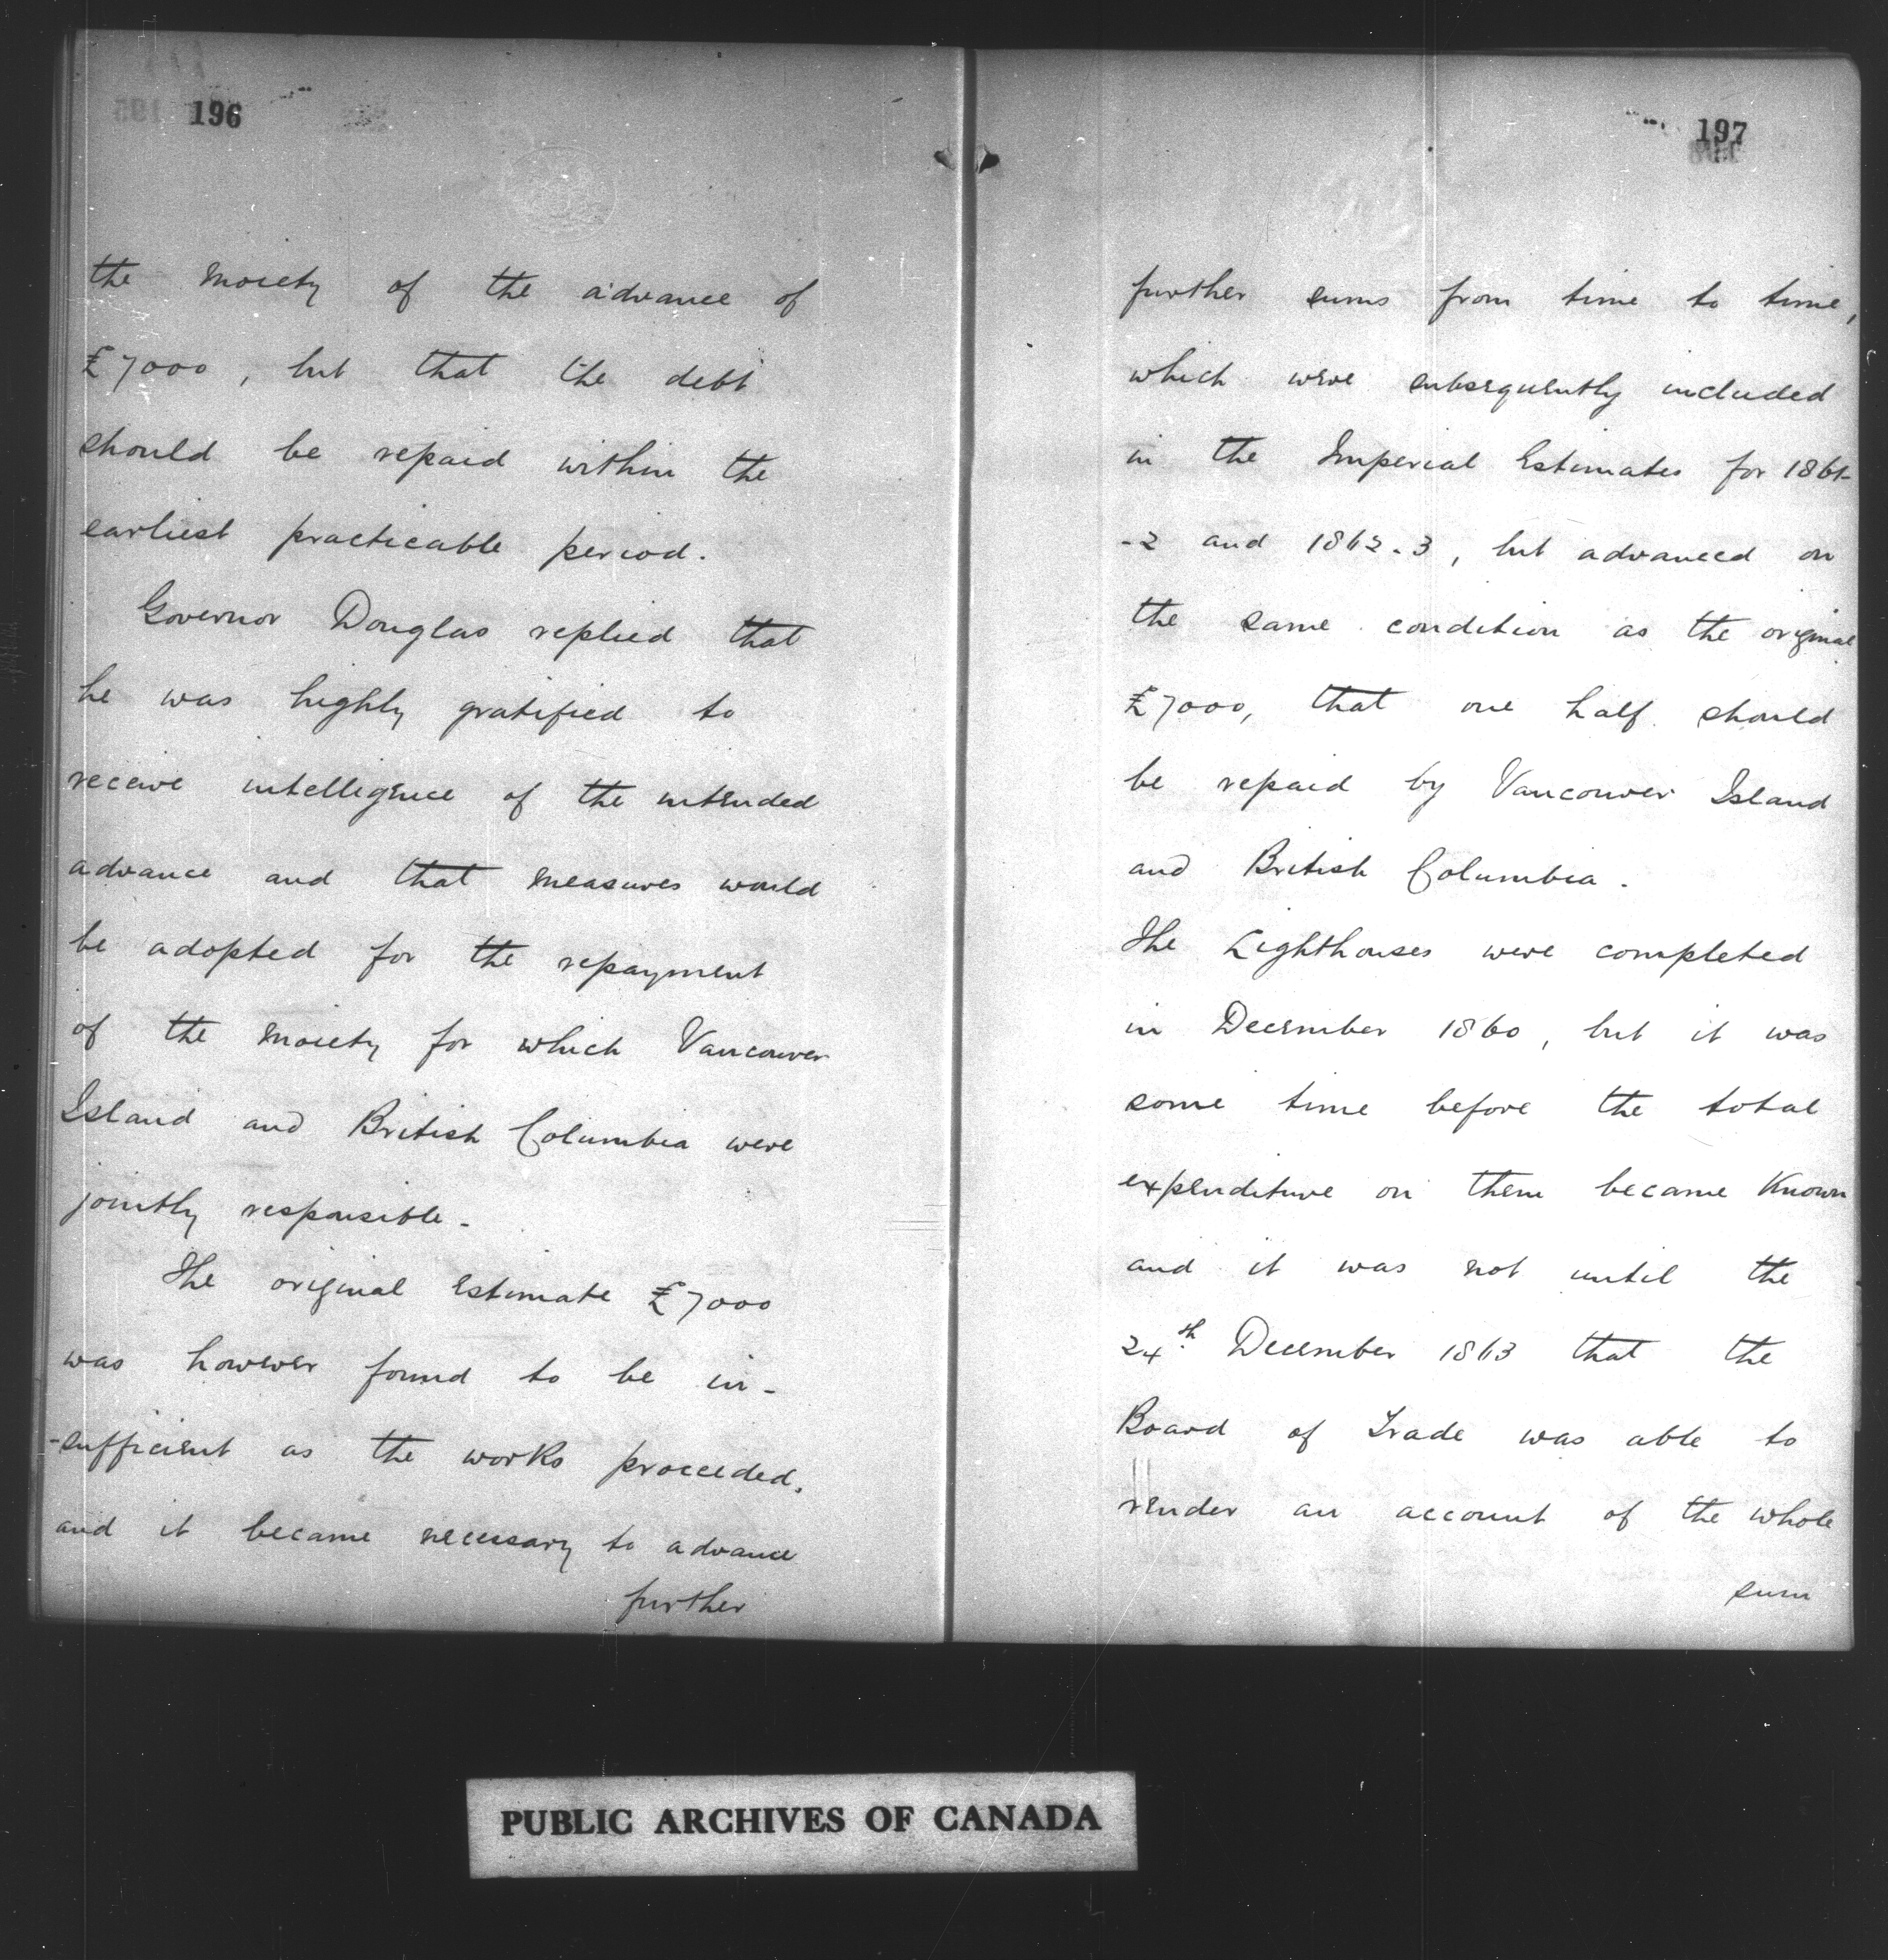 196
the moiety of the advance of
£7000, but that the debt
should be repaid within the
earliest practicable period.
Governor Douglas replied that
he was highly gratified to
receive intelligence of the intended
advance and that measures would
be adopted for the repayment
of the moiety for which Vancouver
Island and British Columbia were
jointly responsible.
The original Estimate £7000
was however found to be in-
-sufficient as the works proceeded,
and it became necessary to advance
further
197
further sums from time to time,
which were subsequently included
in the Imperial Estimates for 1861-
-2 and 1862-3, but advanced on
the same condition as the original
£7000, that one half should
be repaid by Vancouver Island
and British Columbia.
The Lighthouses were completed
in December 1860, but it was
some time before the total
expenditure on them became Known
and it was not until the
24th December 1863 that the
Board of Trade was able to
render an account of the whole
sum
PUBLIC ARCHIVES OF CANADA